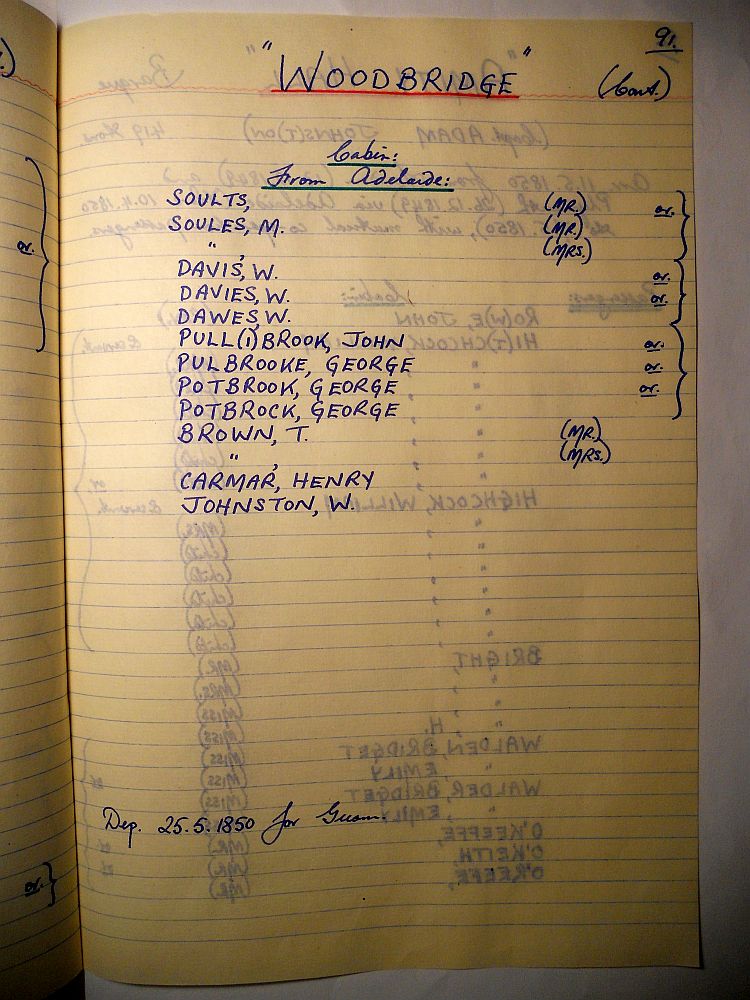 91.
"WOODBRIDGE" (Cont.)
Cabin:
From Adelaide:
SOULTS, (MR.) or.
SOULES, M. (MR.)
" , (MRS.)
DAVIS, W. or.
DAVIES, W. or.
DAWES, W.
PULL(I)BROOK, JOHN or.
PULBROOKE, GEORGE or.
POTBROOK, GEORGE or.
POTBROCK, GEORGE
BROWN, T. (MR.)
" , (MRS.)
CARMAR, HENRY
JOHNSTON, W.
Dep. 25.5.1850 for Guam.
or.
or.